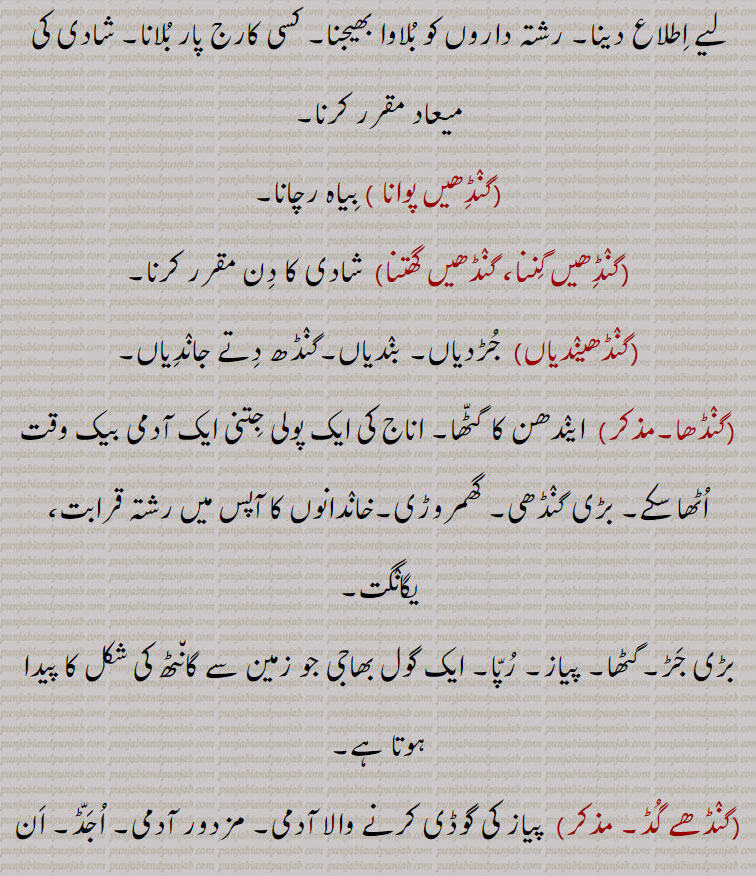 لیے اِطلاع دینا۔ رشتہ داروں کو بُلاوا بھیجنا۔ کسی کارج پار بُلانا۔ شادی کی
میعاد مقرر کرنا۔
(گنْڈِھیں پوانا ) بِیاہ رچانا۔
(گنْڈِھیں گِننا، گنْڈھیں گھتنا) شادی کا دِن مقرر کرنا۔
(گنْڈھینْدیاں) جُڑدیاں۔ بنْدیاں۔گنْڈھ دِتے جانْدِیاں۔
(گنْڈھا۔مذکر) اینْدھن کا گٹّھا۔ اناج کی ایک پولی جِتنی ایک آدمی بیک وقت
اُٹھا سکے۔ بڑی گنْڈھی۔ گھمروڑی۔خانْدانوں کا آپس میں رشتہ قرابت،
یگانْگت۔
بڑی جَڑ۔گٹھا۔ پیاز۔ رُپّا۔ ایک گول بھاجی جو زمین سے گانْٹھ کی شکل کا پیدا
ہوتا ہے۔
(گنْڈھے گُڈ۔ مذکر) پیاز کی گوڈی کرنے والا آدمی۔ مزدور آدمی۔ اُجَڈّ۔ اَن